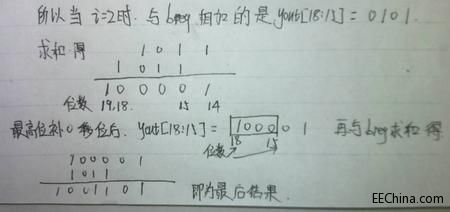 所以当 i=2时. 与breg 相加的是 yout[18:15] = 0101.
求和 得 1 0 1 1
1 0 1 1
1 0 0 0 0 1
位数 19.18. 15 14
最高位补0移位后. yout[18:15] = 1000 0 1 再与breg求和 得
位数 18 15
1 0 0 0 0 1
1 0 1 1
1 0 0 1 1 0 1 即为最后结果.
EEChina.com